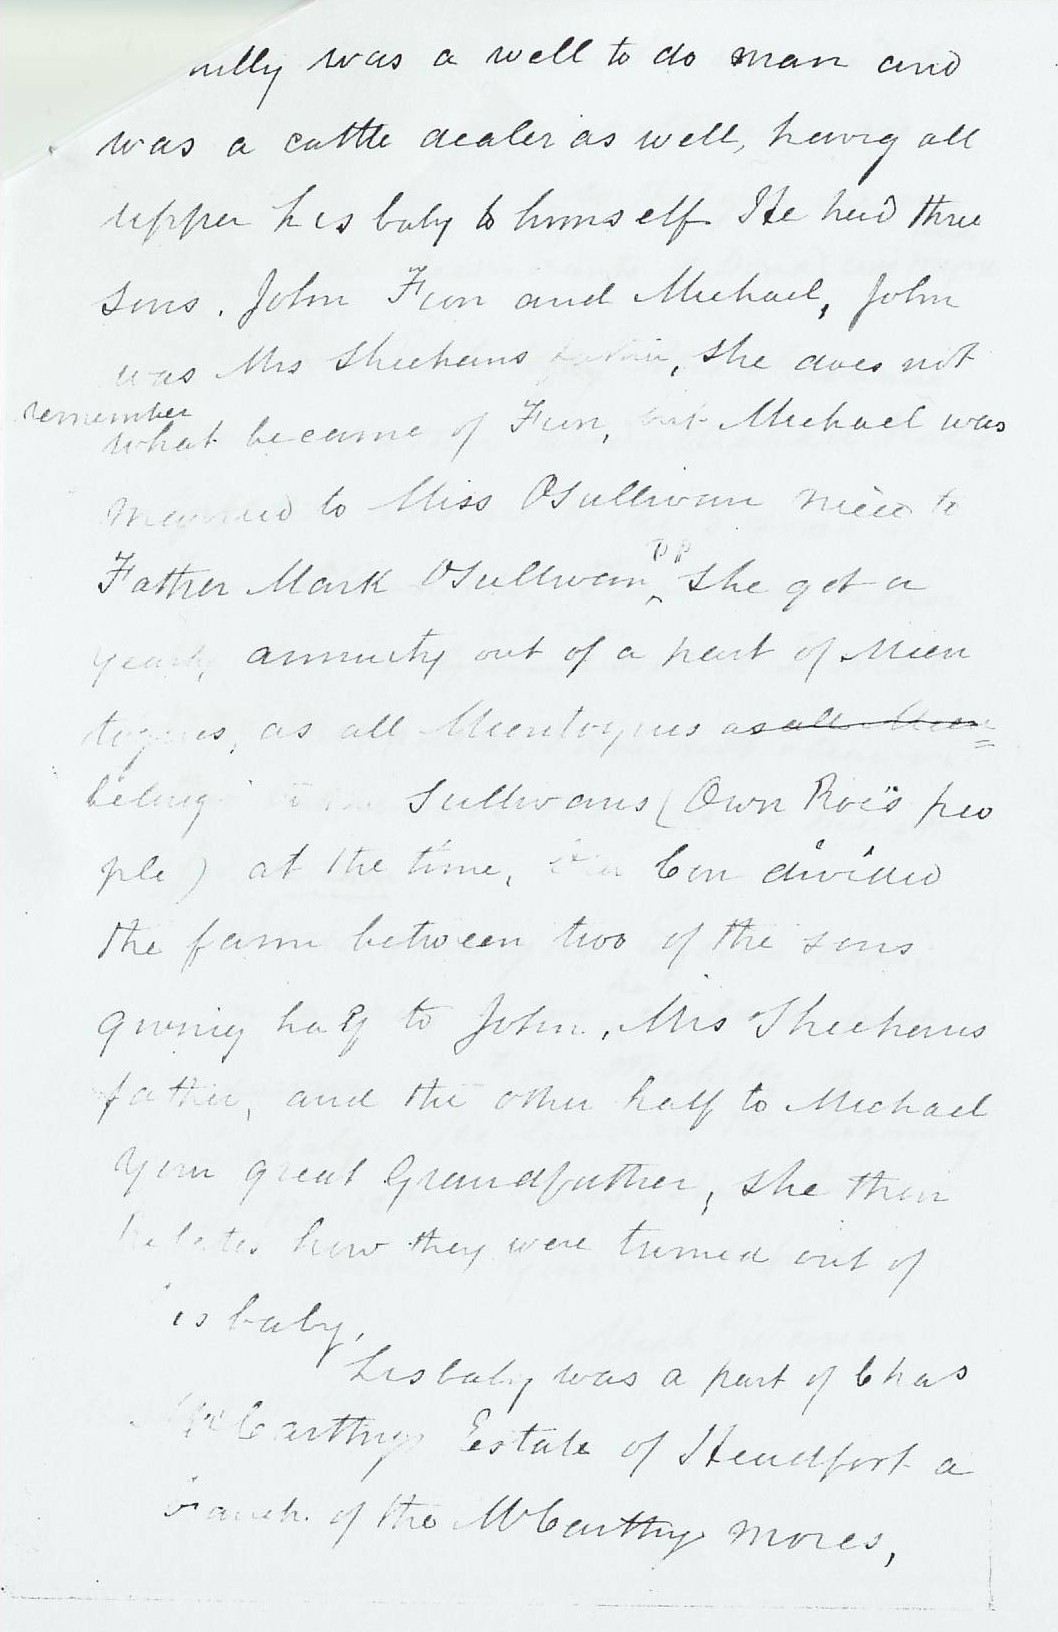 was a well to do man and
was a cattle dealer as well, having all
upper Lisbaby to himself. He had three
sons. John Finn and Michael, John
was Mrs Sheehans father, she does not
remember
what became of Finn, but Michael was
married to Miss OSullivan niece to
Father Mark OSullivan PP She got a
yearly annuity out of a part of Mien
togues, as all Mientogues as all Mien
belong Sullivans (Own Roe's peo
ple) at the time, Con divided
the farm between two of the sons
giving half to John, Mrs Sheehans
father, and the other half to Michael
your great Grandfather, she then
Relates how they were turned out of
isbaby.
Lisbaby was a part of Chas
McCarthys Estate of Headfort a
branch of the McCarthy mores,